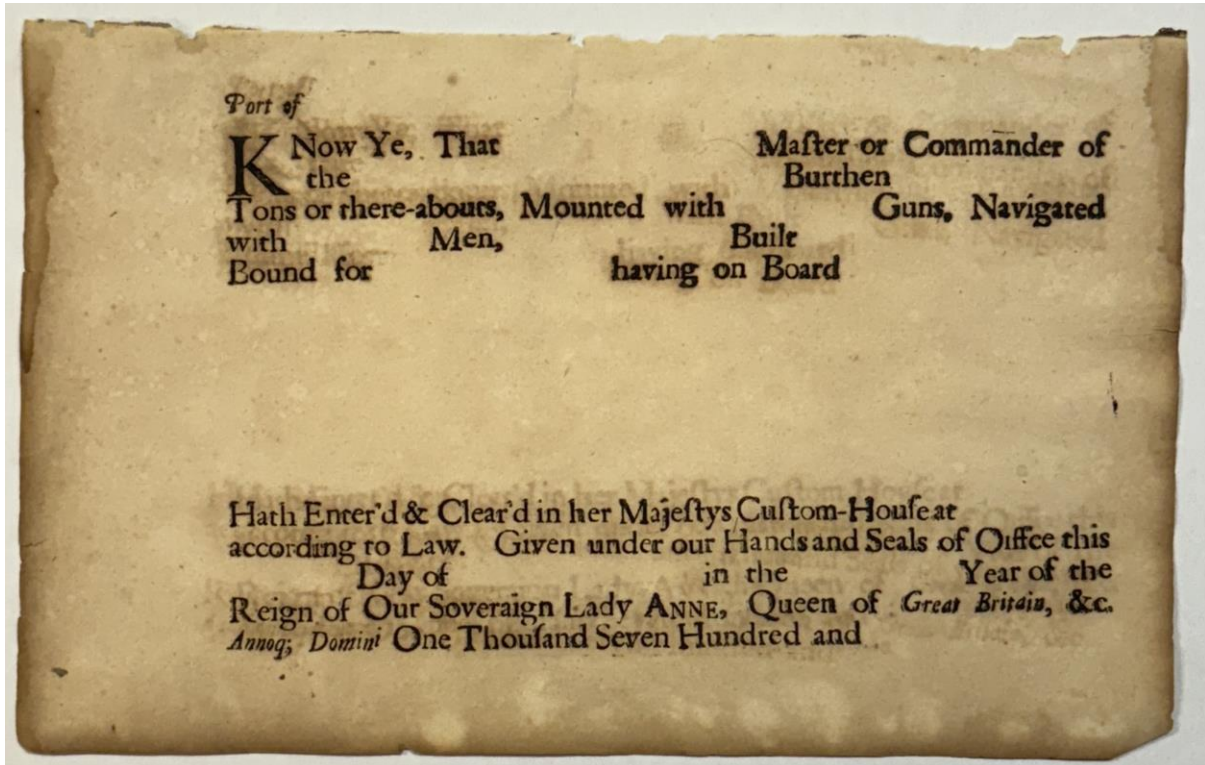 Port of
KNow Ye, That Maſter or Commander of
the Burthen
Tons or there-abouts, Mounted with Guns, Navigated
with Men, Built
Bound for having on Board
Hath Enter'd & Clear'd in her Majeſtys Cuſtom-Houſe at
according to Law. Given under our Hands and Seals of Oiffce this
Day of in the Year of the
Reign of Our Soveraign Lady ANNE, Queen of Great Britain, &c.
Annoq; Domini One Thouſand Seven Hundred and